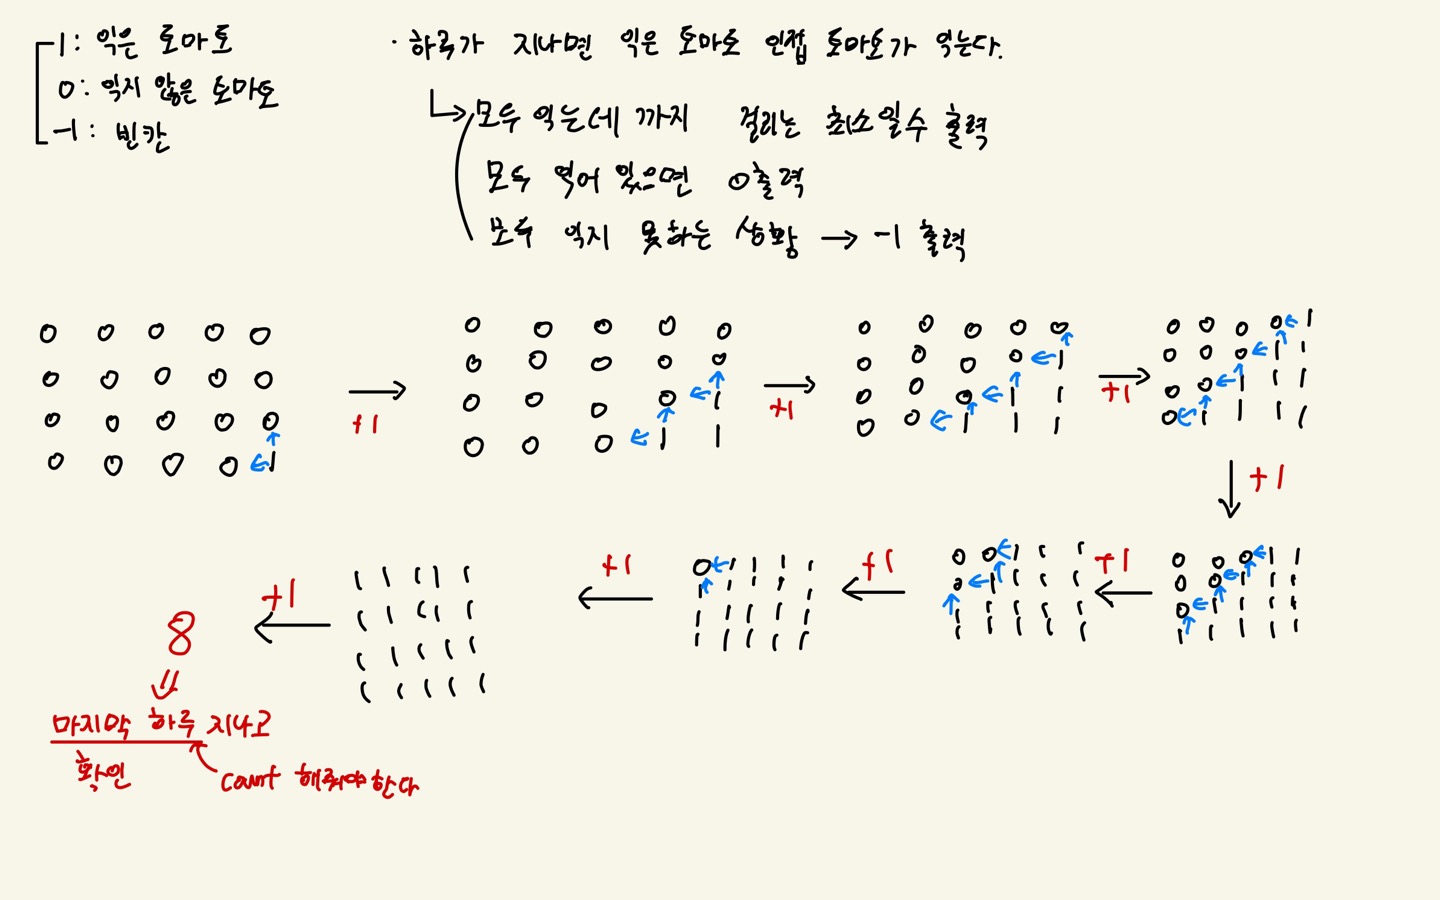 1: 익은 토마토
0: 익지 않은 토마토
-1: 빈칸
· 하루가 지나면 익은 토마토 인접 토마토가 익는다.
모두 익는데 까지 걸리는 최소일수 출력
모두 익어 있으면 0출력
모두 익지 못하는 상황 → -1 출력
0 0 0 0 0
0 0 0 0 0
0 0 0 0 0
0 0 0 0 ← 1
→ +1
0 0 0 0 0
0 0 0 0 0
0 0 0 0 ← 1
0 0 0 ← 1 1
→ +1
0 0 0 0 0
0 0 0 0 ← 1
0 0 0 ← 1 1
0 0 ← 1 1 1
→ +1
0 0 0 0 ← 1
0 0 0 ← 1 1
0 0 ← 1 1 1
0 ← 1 1 1 1
↓ +1
0 0 0 ← 1 1
0 0 ← 1 1 1
0 ← 1 1 1 1
1 1 1 1 1
+1 ←
0 0 ← 1 1 1
0 ← 1 1 1 1
1 1 1 1 1
1 1 1 1 1
+1 ←
0 ← 1 1 1 1
1 1 1 1 1
1 1 1 1 1
1 1 1 1 1
+1 ←
1 1 1 1 1
1 1 1 1 1
1 1 1 1 1
1 1 1 1 1
+1 ←
8
⇓
마지막 하루 지나고
확인
count 해줘야한다